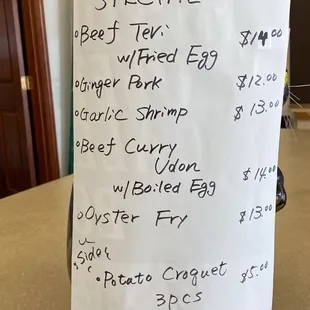 Beef Teri $14.00
w/Fried Egg
Ginger Pork $12.00
Garlic Shrimp $13.00
Beef Curry
Udon $14.00
w/Boiled Egg
Oyster Fry $13.00
Side
Potato Croquet $5.00
3pcs